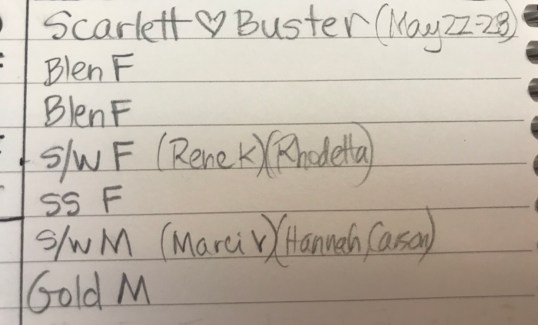 Scarlett ♡ Buster (May 22-23)
Blen F
Blen F
S/W F (Rene K)(Rhodetta)
SS F
S/W M (Marci V)(Hannah, Carson)
Gold M